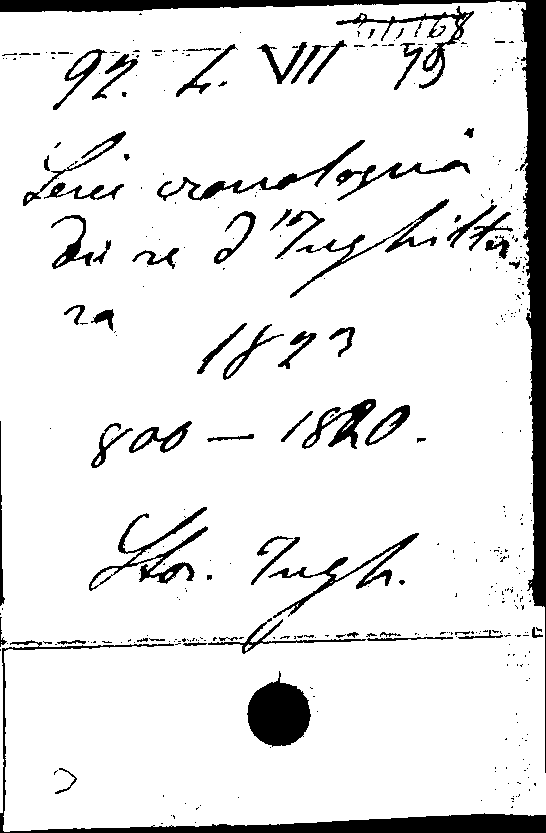 92. L. VII 79
Serie cronologica
dei re d'Inghilter
ra
1823
800 — 1820.
Stor. Ingh.